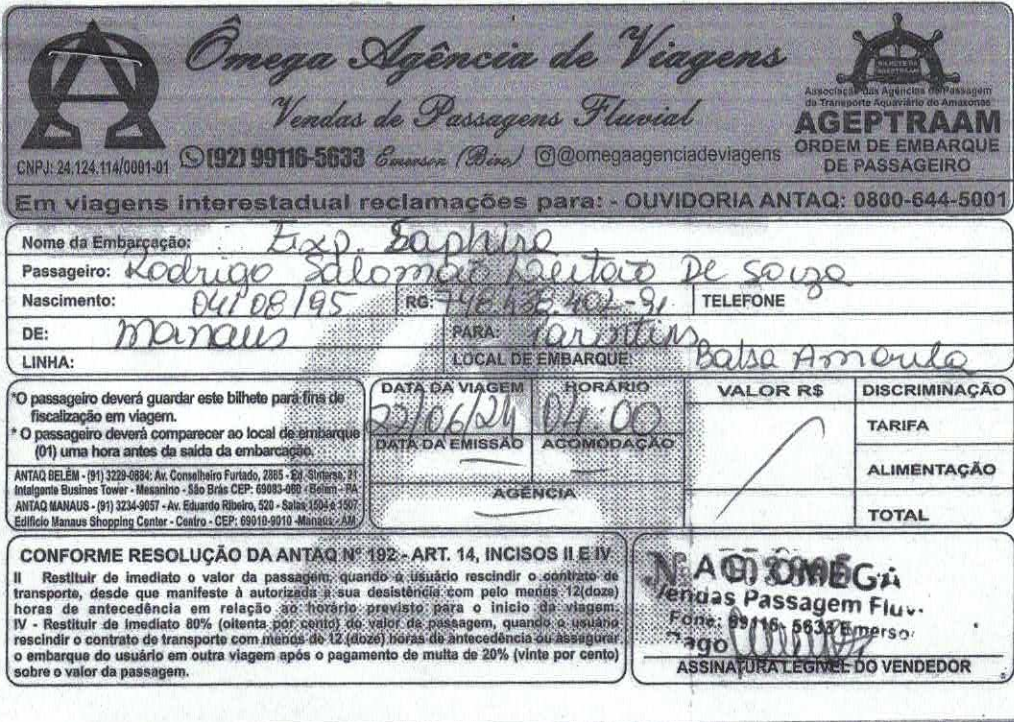 Ômega Agência de Viagens
Vendas de Passagens Fluvial
CNPJ: 24.124.114/0001-01
(92) 99116-5633 Emerson (Biro) @omegaagenciadeviagens
Associação das Agências de Passagem
da Transporte Aquaviário do Amazonas
AGEPTRAAM
ORDEM DE EMBARQUE
DE PASSAGEIRO
Em viagens interestadual reclamações para: - OUVIDORIA ANTAQ: 0800-644-5001
Nome da Embarcação: Exp. Saphira
Passageiro: Rodrigo Salomão Leitão De Souza
Nascimento: 04/08/95 RG: TELEFONE
DE: Manaus PARA: Parintins
LINHA: LOCAL DE EMBARQUE: Balsa Amarela
*O passageiro deverá guardar este bilhete para fins de
fiscalização em viagem.
* O passageiro deverá comparecer ao local de embarque
(01) uma hora antes da saída da embarcação.
ANTAQ BELÉM - (91) 3229-0684: Av. Conselheiro Furtado, 2865 - Ed. Sintersa, 21
Intalgante Busines Tower - Mesanino - São Brás CEP: 69083-060 - Belem - PA
ANTAQ MANAUS - (91) 3234-9057 - Av. Eduardo Ribeiro, 520 - Salas 1504 e 1507
Edificio Manaus Shopping Center - Centro - CEP: 69010-9010 - Manaus - AM
DATA DA VIAGEM HORÁRIO
22/06/24 04:00
DATA DA EMISSÃO ACOMODAÇÃO
AGÊNCIA
VALOR R$ DISCRIMINAÇÃO
TARIFA
ALIMENTAÇÃO
TOTAL
CONFORME RESOLUÇÃO DA ANTAQ Nº 192 - ART. 14, INCISOS II E IV
II Restituir de imediato o valor da passagem, quando o usuário rescindir o contrato de
transporte, desde que manifeste à autorizada a sua desistência com pelo menos 12(doze)
horas de antecedência em relação ao horário previsto para o inicio da viagem.
IV - Restituir de Imediato 80% (oitenta por cento) do valor da passagem, quando o usuário
rescindir o contrato de transporte com menos de 12 (doze) horas de antecedência ou assegurar
o embarque do usuário em outra viagem após o pagamento de multa de 20% (vinte por cento)
sobre o valor da passagem.
AG. OMEGA
Vendas Passagem Fluv.
Fone: 99116-5633 Emerso
Pago
ASSINATURA LEGÍVEL DO VENDEDOR